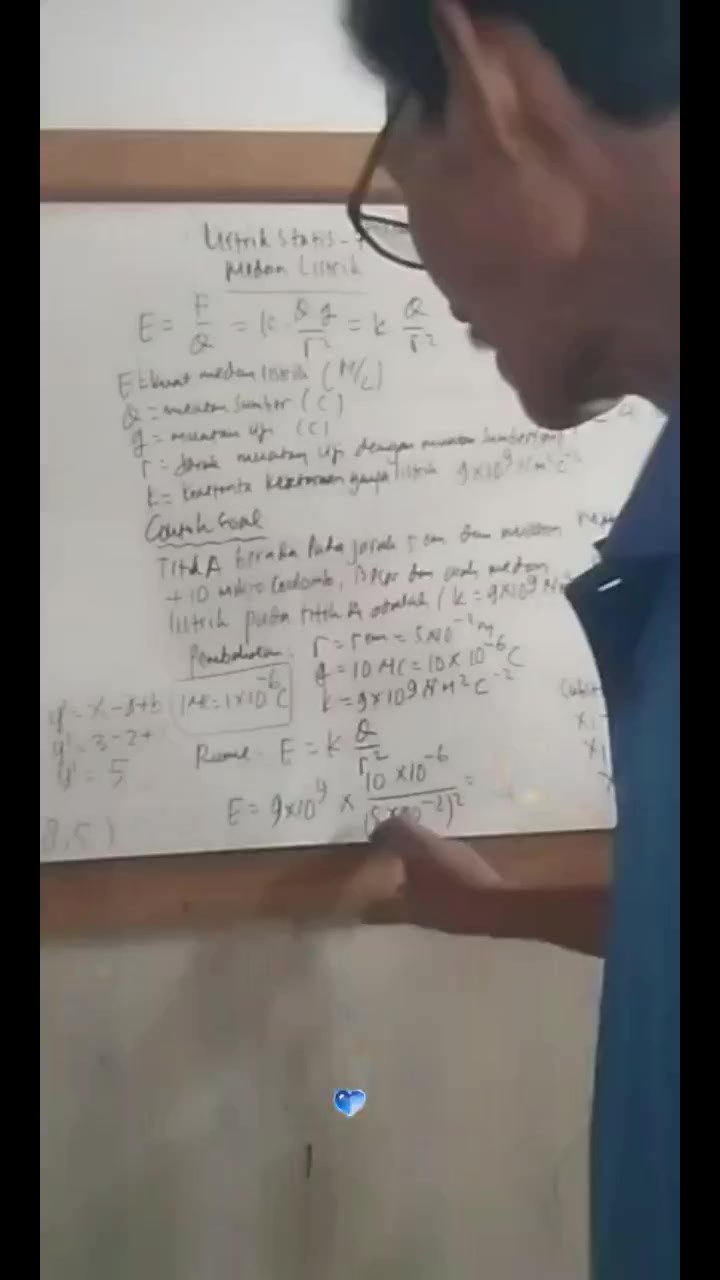 Listrik Statis -
Medan Listrik
E = F/Q = k . Q q/r² = k Q/r²
E = kuat medan listrik (N/C)
Q = muatan sumber (C)
q = muatan uji (C)
r = Jarak muatan uji dengan muatan sumber (m)
k = konstanta kesetaraan gaya listrik 9x10⁹ Nm²C⁻²
Contoh Soal
Titik A berada pada jarak 5 cm dari muatan
+10 mikro Coulomb, besar dan arah medan
listrik pada titik A adalah (k = 9x10⁹ Nm²
Pembahasan: r = 5 cm = 5x10⁻² m
q = 10 MC = 10 x 10⁻⁶ C
1 MC = 1x10⁻⁶ C
k = 9x10⁹ N M² C⁻²
y' = x-2+b
y' = 3-2+
y' = 5
Rumus - E = k Q/r²
E = 9x10⁹ x 10 x10⁻⁶/(5x10⁻²)² =
,5)
x₁
x₁